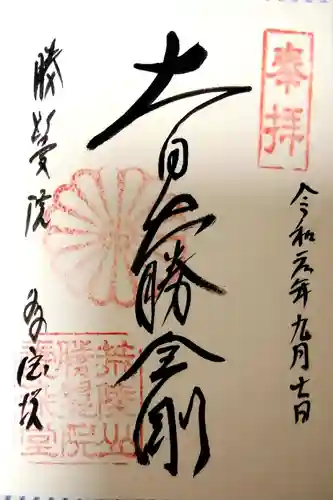 奉拝
令和元年九月七日
大日大勝金剛
勝鬘院
多宝塔
荒陵山
勝鬘院
愛染堂